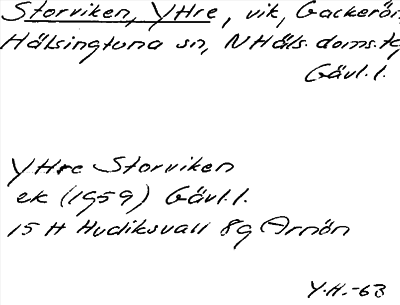 Storviken, Yttre, vik, Gackerön
Hälsingtuna sn, N Häls. doms.tg
Gävl.l.
Yttre Storviken
ek (1959) Gävl.l.
15 H Hudiksvall 8g Arnön
Y.H.-63